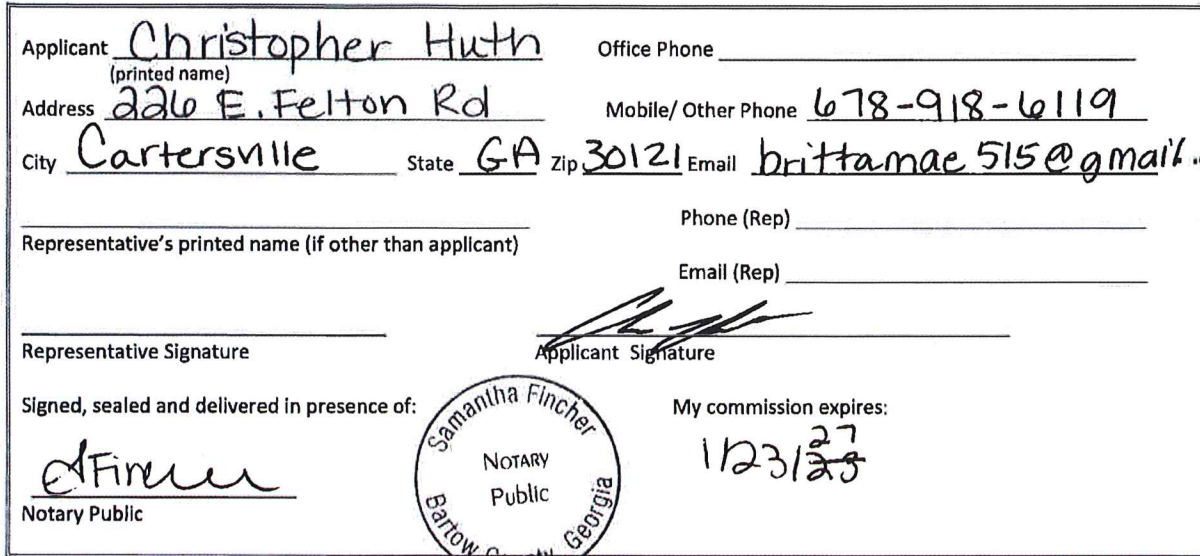 Applicant Christopher Huth Office Phone
(printed name)
Address 226 E. Felton Rd Mobile/ Other Phone 678-918-6119
City Cartersville State GA Zip 30121 Email brittamae515@gmail.
Phone (Rep)
Representative's printed name (if other than applicant)
Email (Rep)
Representative Signature Applicant Signature
Signed, sealed and delivered in presence of: My commission expires:
1/23/23 27
SFincher
Notary Public
Samantha Fincher
NOTARY
Public
Bartow County Georgia